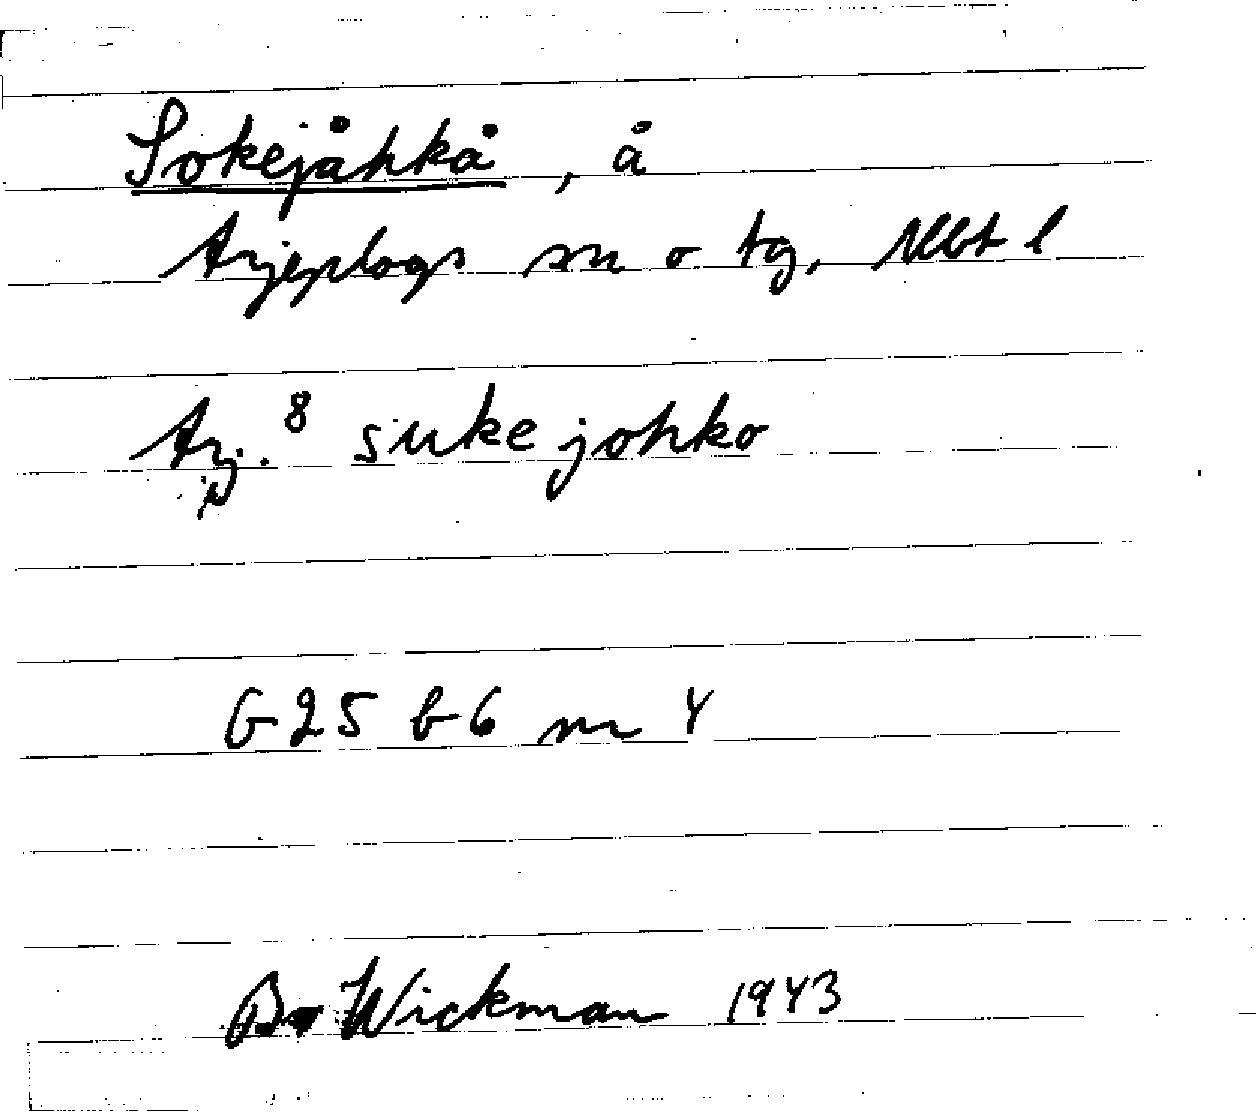 Sokejåhkå, å
Arjeplogs sn o tg, Nbt l
Arj. 8 suke johko
G 25 b 6 m Y
Bo Wickman 1943